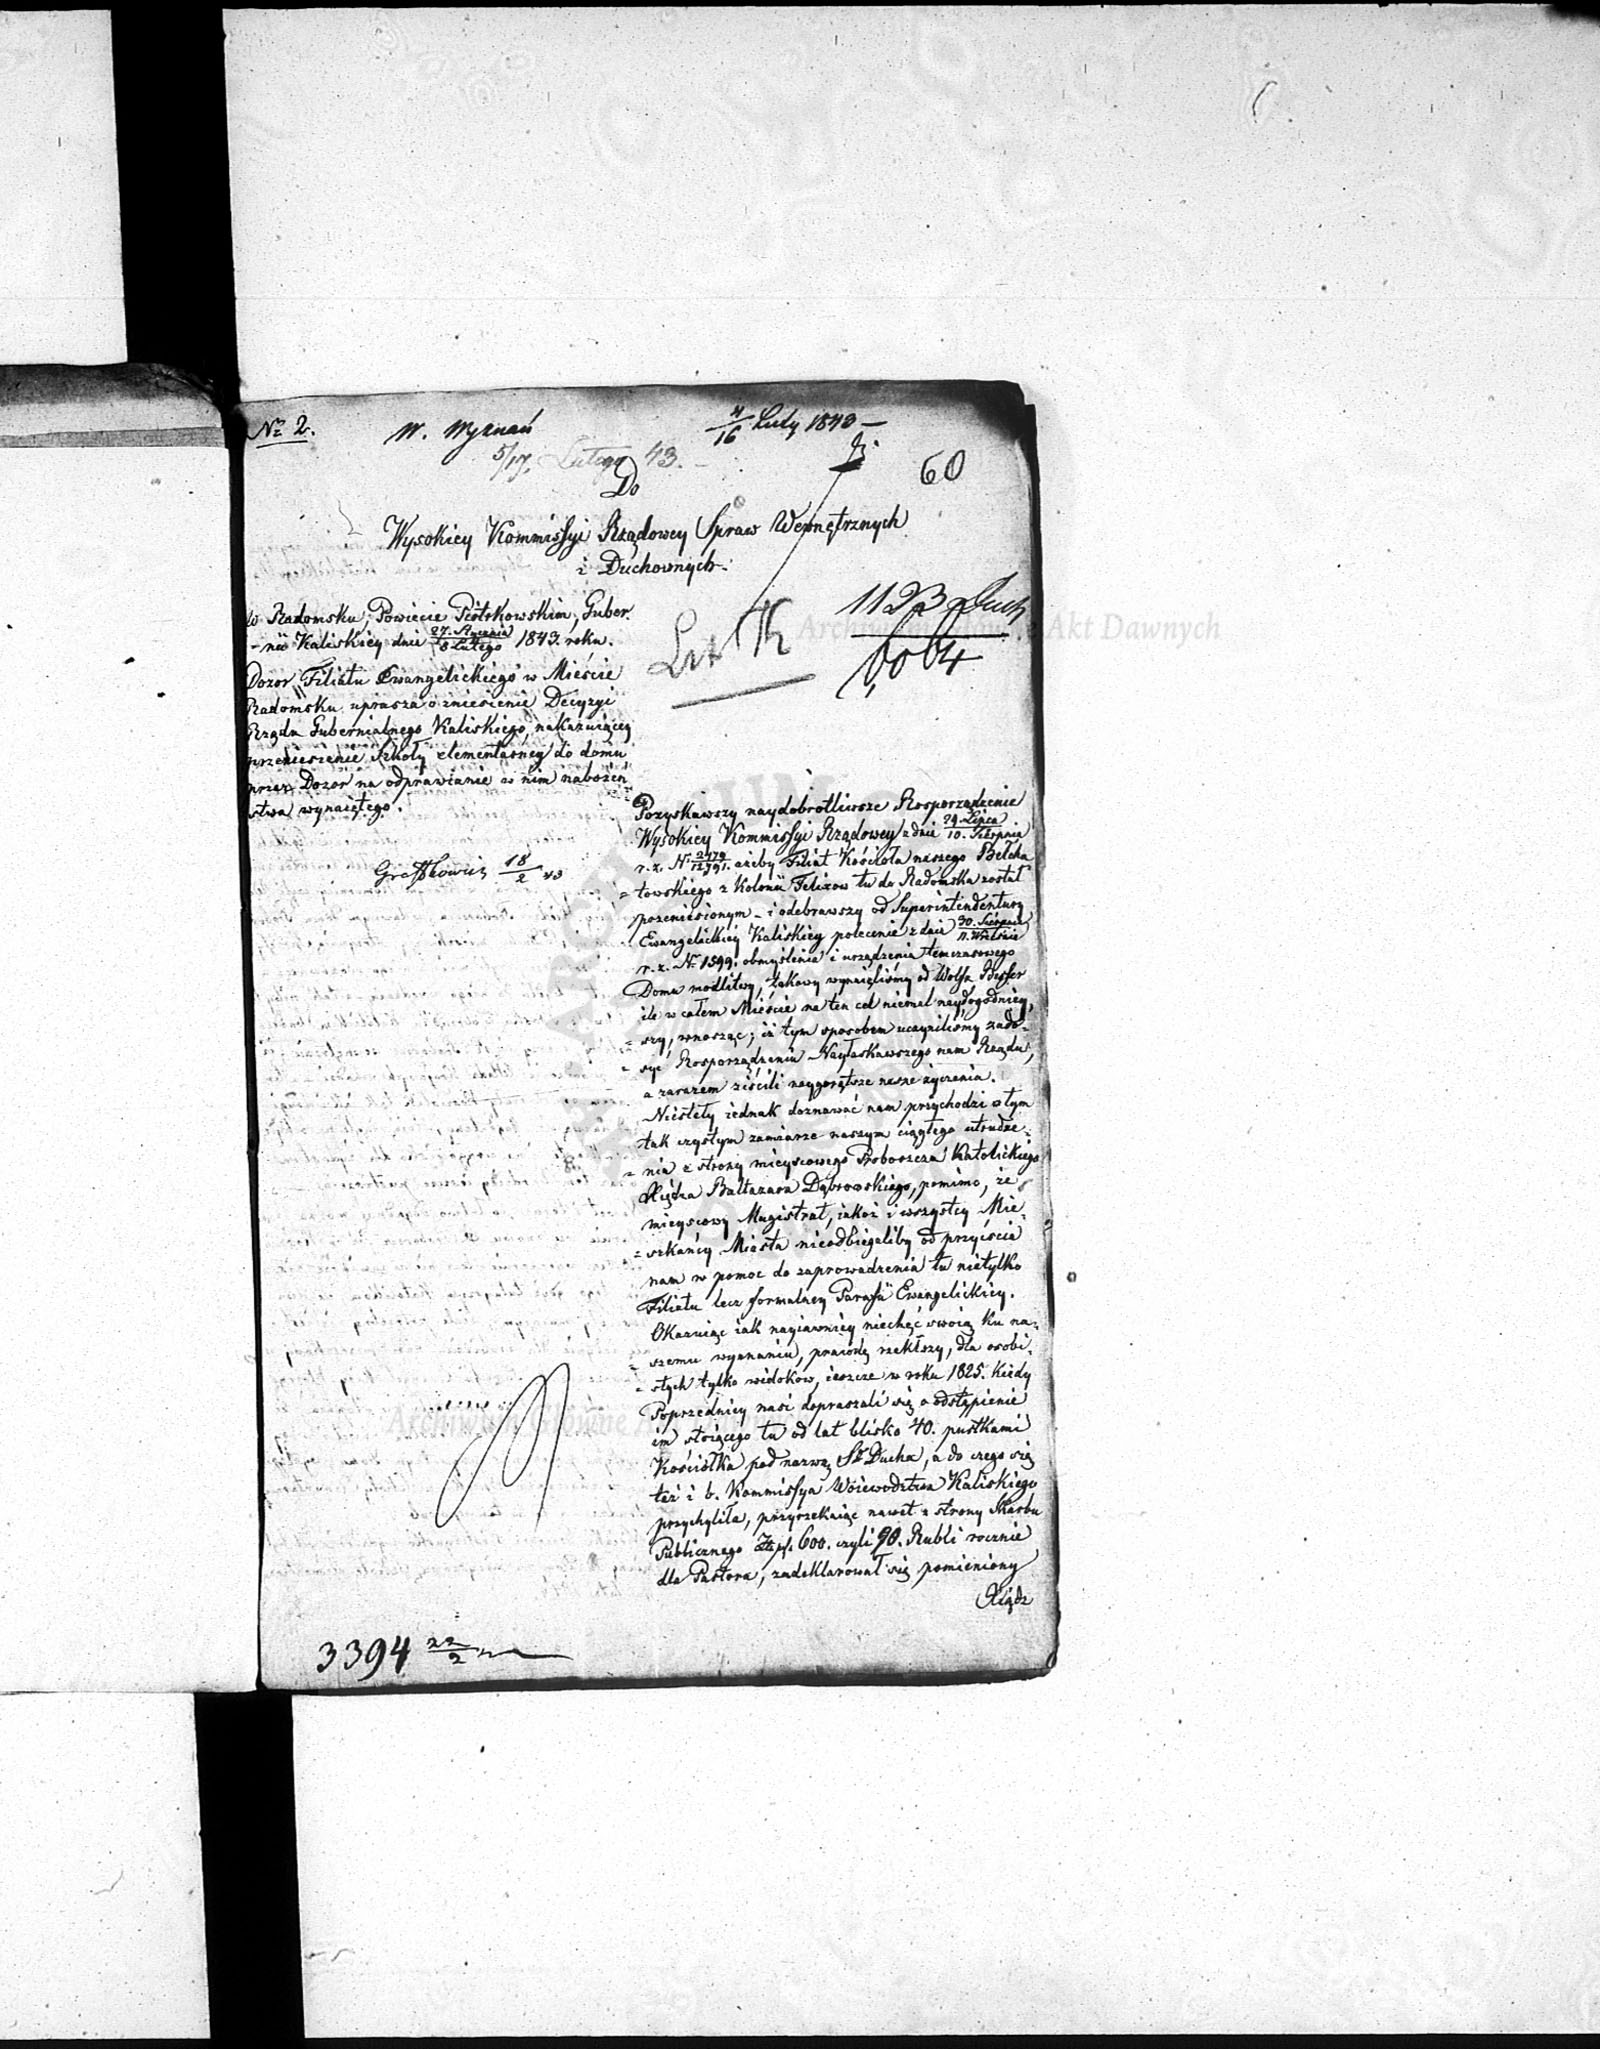 Nr 2.
W. Wyznań
4/16 Luty 1843 —
5/17. Lutego 43. —
60
Do
Wysokiey Kommissyi Rządowey Spraw Wewnętrznych
i Duchownych.
1123 Duch
6064
w Radomsku, Powiecie Piotrkowskim, Guber.
-nii Kaliskiey dnia 27. Stycznia/8 Lutego 1843. roku.
Dozor Filiału Ewangelickiego w Mieście
Radomsku uprasza o zniesienie Decyzyi
Rządu Gubernialnego Kaliskiego, nakazuiącey
przeniesienie szkoły elementarney do domu
przez Dozor na odprawianie w nim nabożeń
stwa wynaiętego.
18/2 43
Pozyskawszy naydobrotliwsze Rosporządzenie
Wysokiey Kommissyi Rządowey z dnia 29. Lipca/10. Sierpnia
r. z. Nr ażeby Filiał Kościoła naszego Bełcha
= towskiego z Kolonii Felixow tu do Radomska został
przeniesionym – i odebrawszy od Superintendentury
Ewangelickiey Kaliskiey polecenie z dnia 30. Sierpnia/11. Wrześnie
r. z. Nr 1599. obmyślenia i urządzenia temczasowego
Domu modlitwy, takowy wynaięliśmy od Wolfa
ile w całem Mieście na ten cel niemal naydogodniey
= szy, wnosząc; iż tym sposobem uczyniliśmy zado-
= syć Rosporządzeniu Nayłaskawszego nam Rządu,
a zarazem ziścili naygorętsze nasze życzenia.
Niestety iednak doznawać nam przychodzi w tym
tak czystym zamiarze naszym ciągłego utrudze-
= nia z strony mieyscowego Proboszcza Katolickiego
Xiędza Baltazara Dąbrowskiego, pomimo, że
mieyscowy Magistrat, iakoż i wszystcy Mie-
= szkańcy Miasta nieodbiegaliby od przyiścia
nam w pomoc do zaprowadzenia tu nietylko
Filiału lecz formalney Parafii Ewangelickiey.
Okazuiąc iak nayiawniey niechęć swoią ku na-
= szemu wyznaniu, prawdę rzekłszy, dla osobi-
= stych tylko widokow, ieszcze w roku 1825. kiedy
Poprzednicy nasi dopraszali się o odstąpienie
im stoiącego tu od lat blisko 40. pustkami
Kościołka pod nazwą Sgo Ducha, a do czego się
też i b. Kommissya Woiewodztwa Kaliskiego
przychyliła, przyrzekaiąc nawet z strony Skarbu
Publicznego Złp. 600. czyli 90. Rubli rocznie
dla Pastora, zadeklarował się pomieniony
Xiądz
3394 22/2
Archiwum Główne Akt Dawnych
Archiwum Główne Akt Dawnych